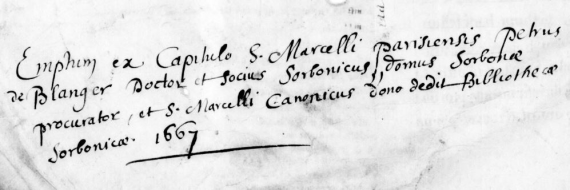 Emptum ex Capitulo S. Marcelli parisiensis Petrus
de Blanger Doctor et socius Sorbonicus, domus Sorbonæ
procurator, et S. Marcelli Canonicus dono dedit Bibliothecæ
Sorbonicæ. 1667